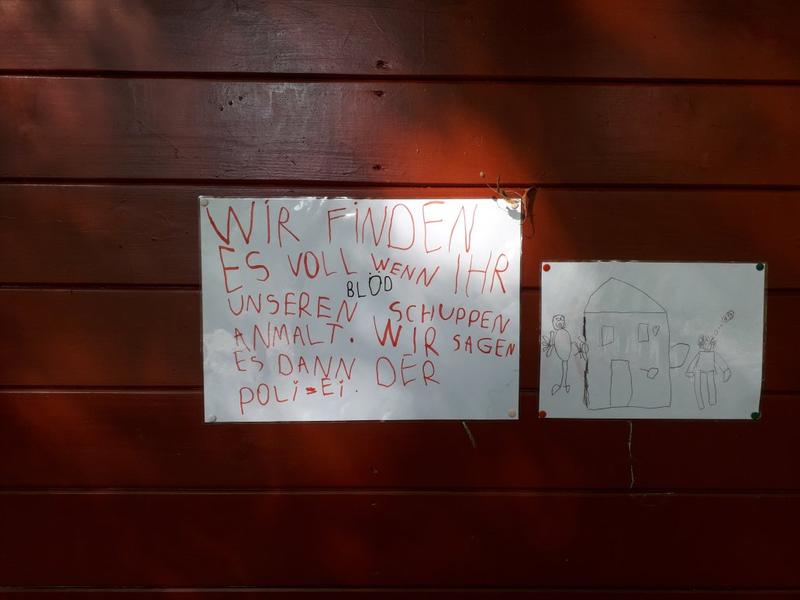 WIR FINDEN
ES VOLL WENN IHR
BLÖD
UNSEREN SCHUPPEN
ANMALT. WIR SAGEN
ES DANN DER
POLIZEI.